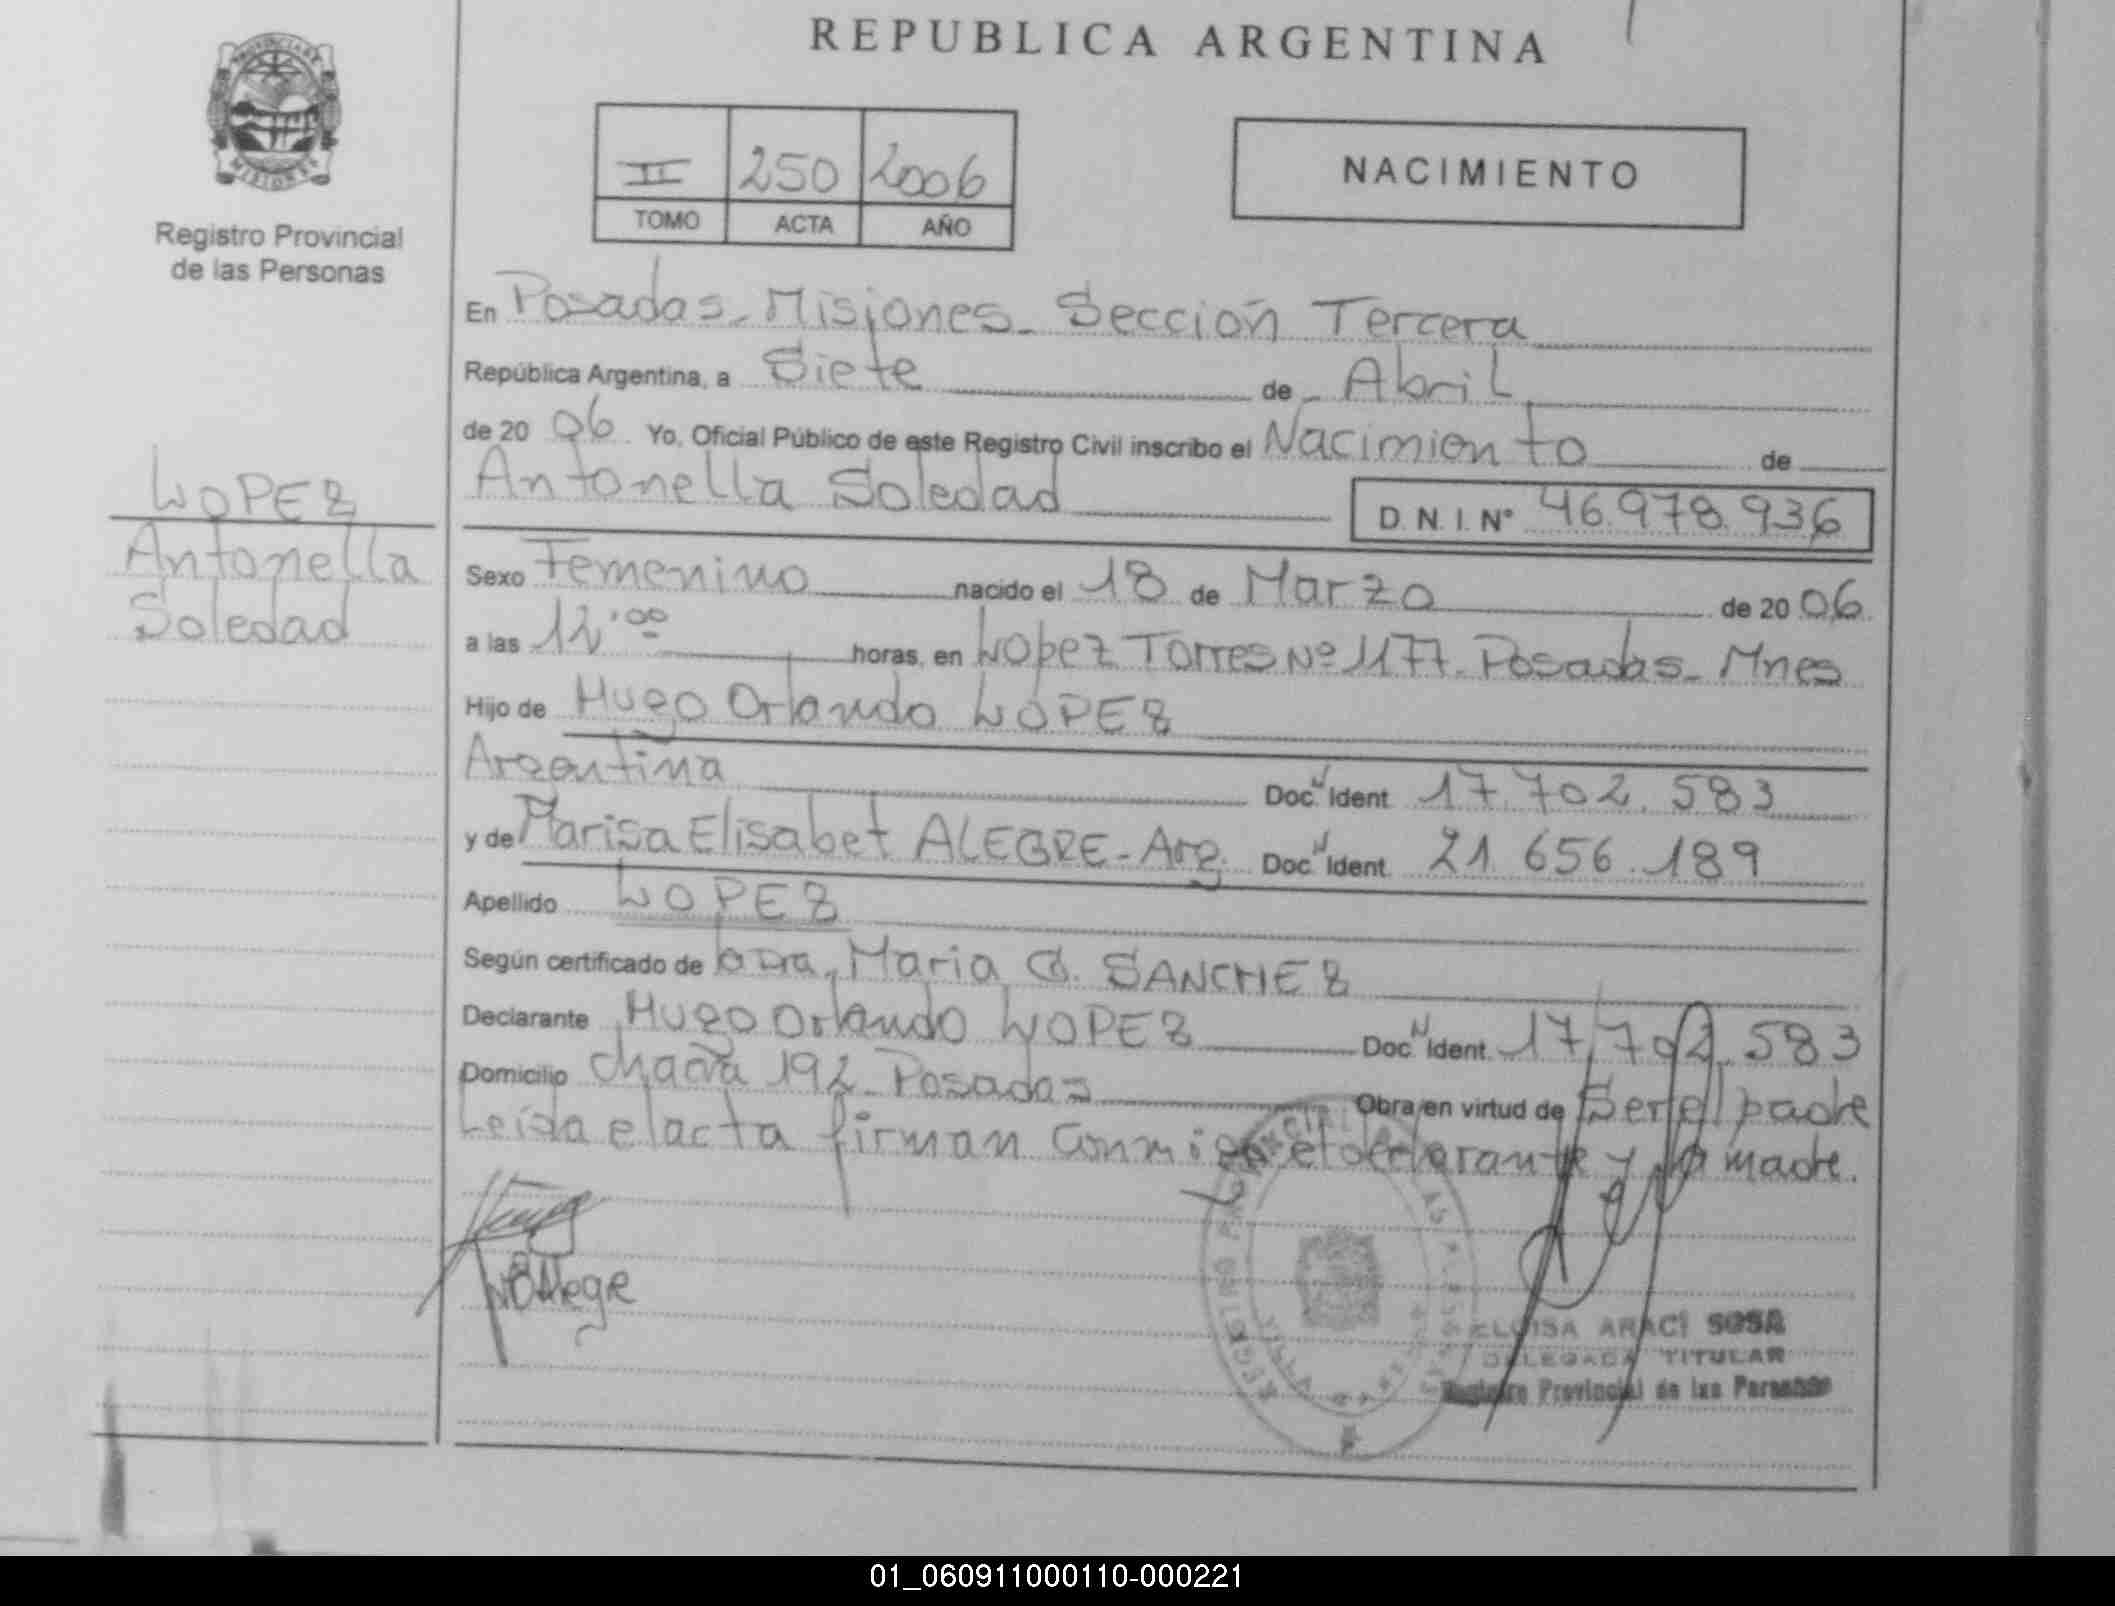 REPUBLICA ARGENTINA
PROVINCIA DE
MISIONES
Registro Provincial
de las Personas
II 250 2006
TOMO ACTA AÑO
NACIMIENTO
En Posadas - Misiones - Sección Tercera
República Argentina, a Siete de Abril
de 20 06 Yo, Oficial Público de este Registro Civil inscribo el Nacimiento de
Antonella Soledad D. N. I. Nº 46.978.936
LOPEZ
Antonella
Soledad
Sexo Femenino nacido el 18 de Marzo de 20 06
a las 12'00 horas, en Lopez Torres Nº 1177 - Posadas - Mnes
Hijo de Hugo Orlando LOPEZ
Argentina Doc. Ident 17.702.583
y de Marisa Elisabet ALEGRE - Arg. Doc. Ident. 21.656.189
Apellido LOPEZ
Según certificado de Dra. Maria SANCHEZ
Declarante Hugo Orlando LOPEZ Doc. Ident. 17.702.583
Domicilio Chacra 192 - Posadas Obra en virtud de Ser el padre
Leída el acta firman conmigo el declarante y la madre.
Alegre
ELOISA ARACI SOSA
DELEGADA TITULAR
Registro Provincial de las Personas
01_060911000110-000221